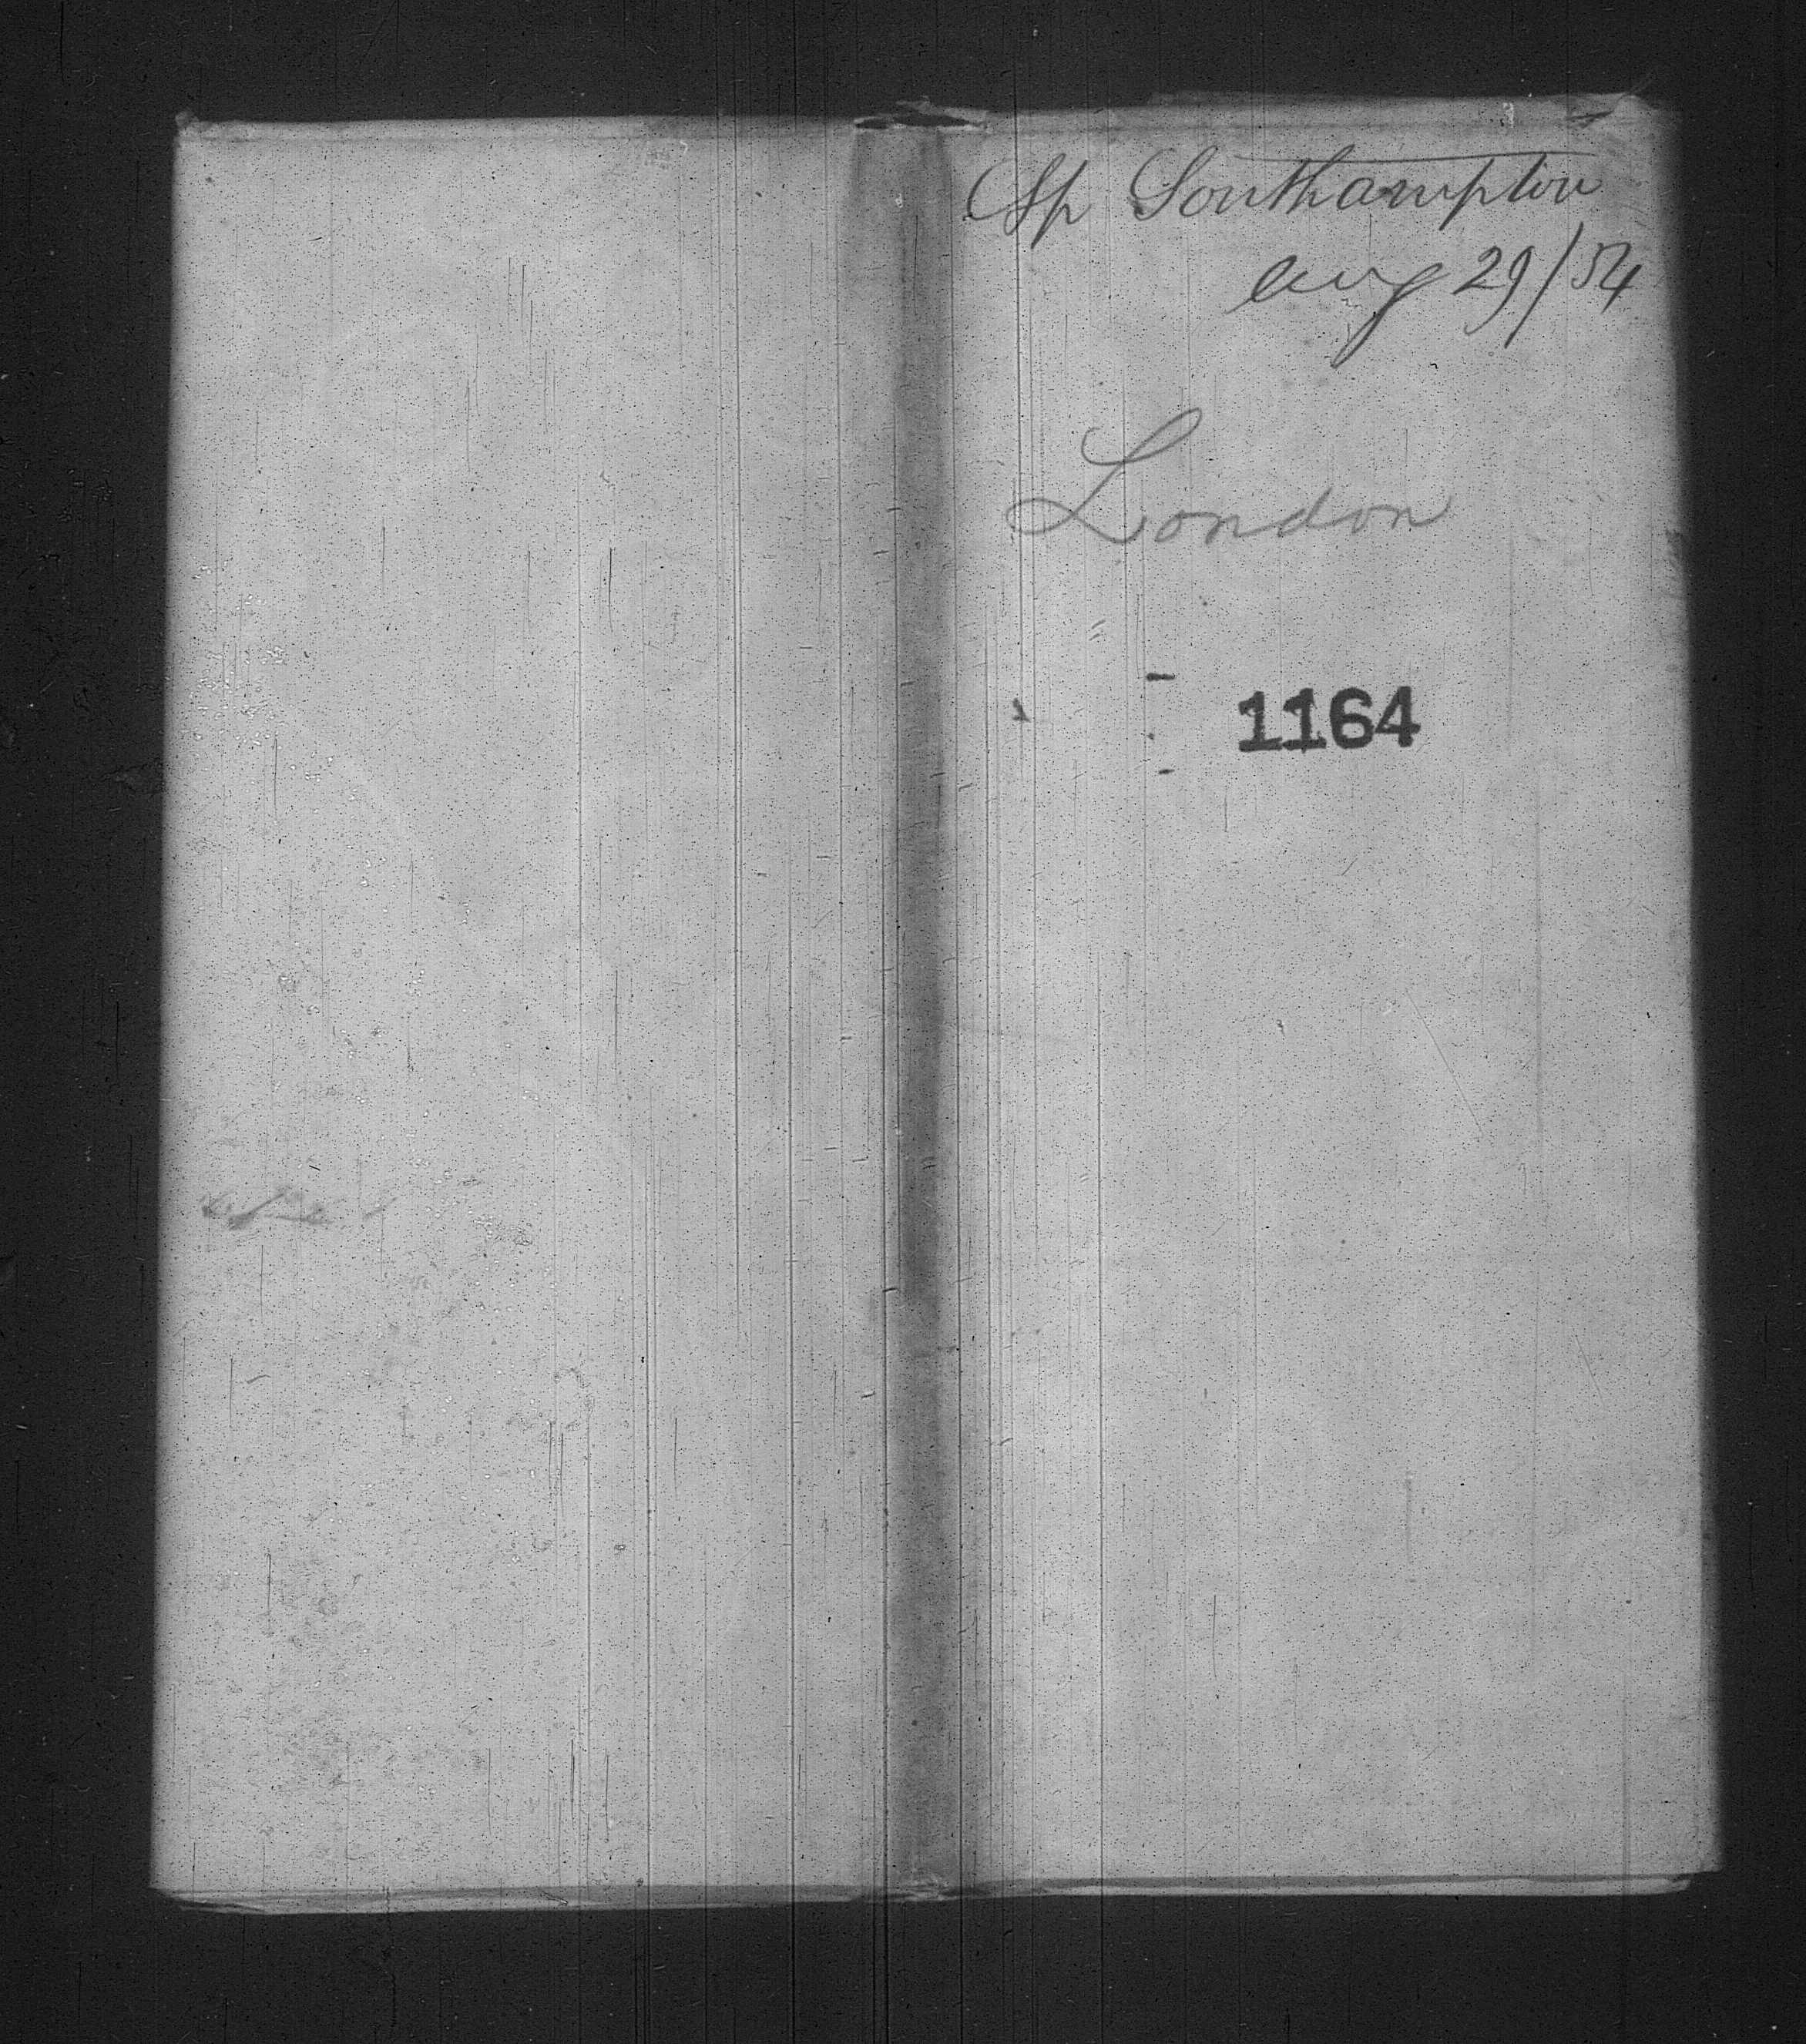 Sp Southampton
Aug 29/54
London
1164